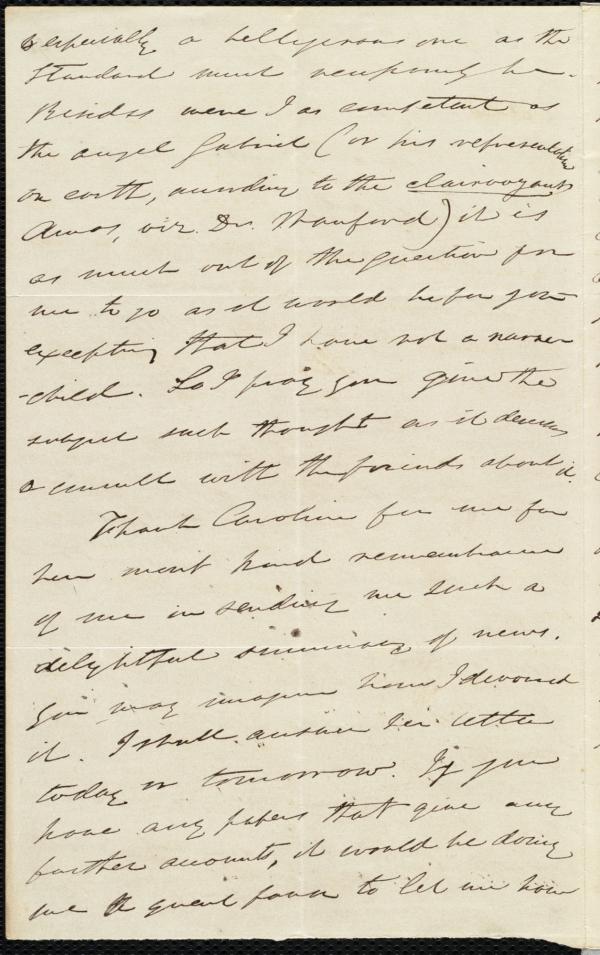 especially a belligerous one as the
Standard must necessarily be.
Besides were I as competent as
the angel Gabriel (or his representative
on earth, according to the clairvoyants
Amos, viz. Dr. Hanford) it is
as much out of the question for
me to go as it would be for you
excepting that I have not a
-child. So I pray you give the
subject such thought as it deserves
& consult with the friends about it.
Thank Caroline for me for
her most kind remembrance
of me in sending me such a
delightful summary of news.
You may imagine how I devoured
it. I shall answer her letter
today or tomorrow. If you
have any papers that give any
further accounts, it would be doing
me a great favor to let me have